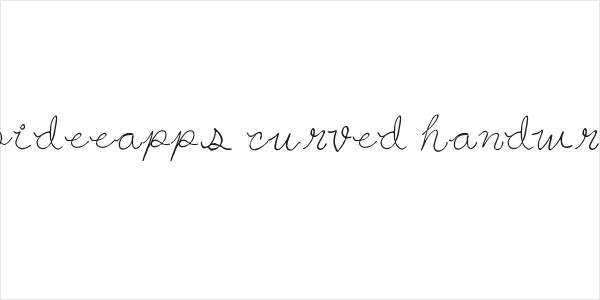 ideeapps curved handwr